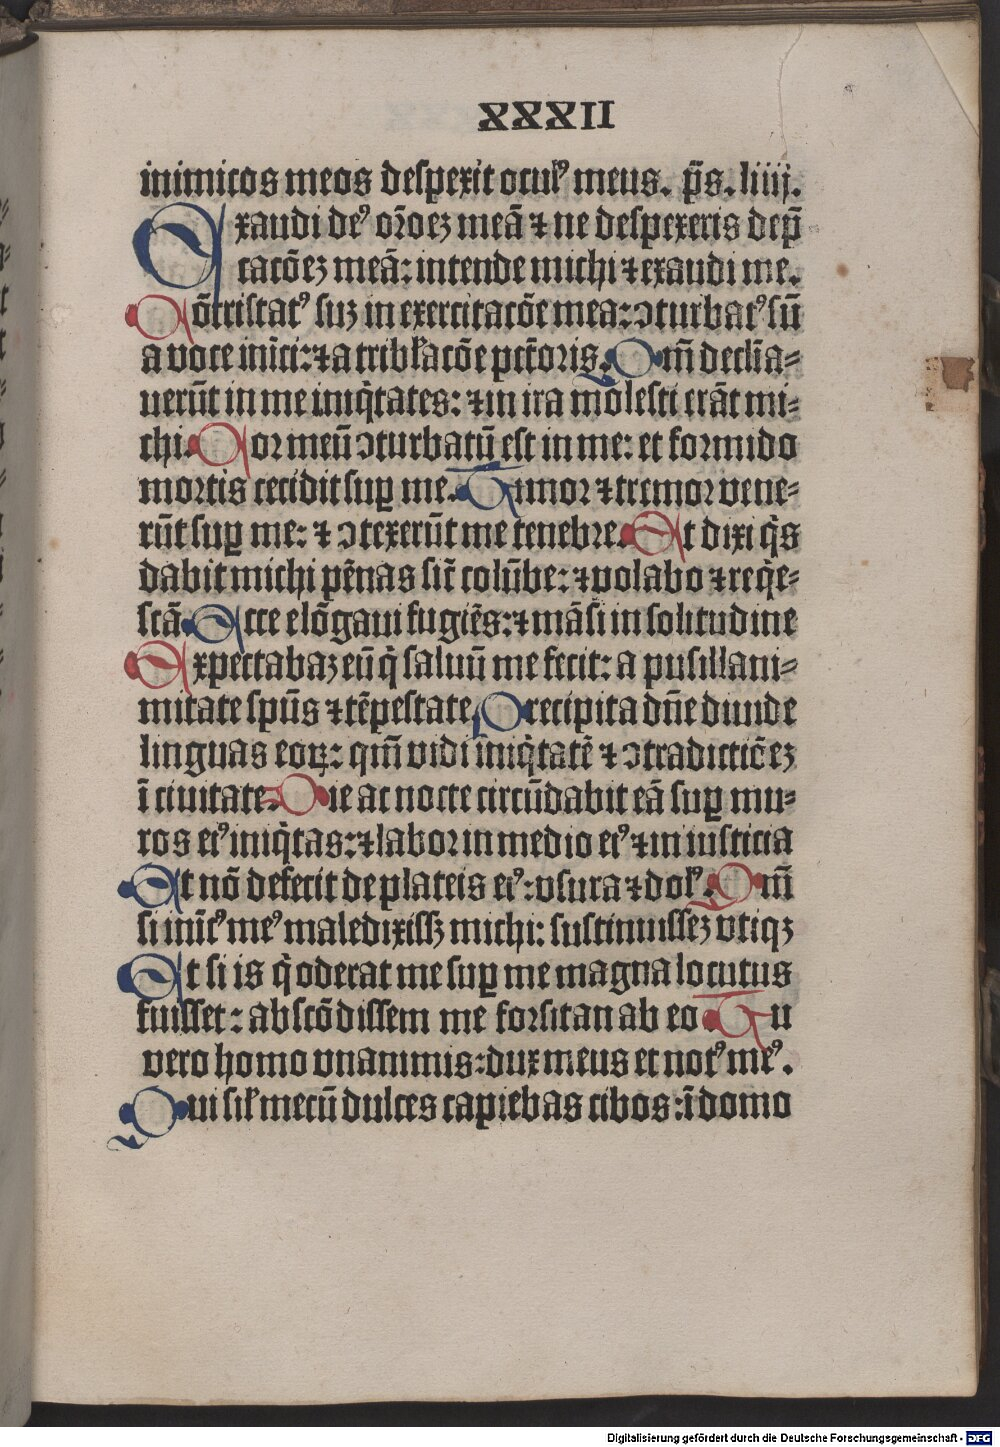 XXXII
inimicos meos despexit oculꝰ meus. p̄s. liiij.
Exaudi deꝰ or̄oeꝫ meā ⁊ ne despexeris dep̄
cacōeꝫ meā: intende michi ⁊ exaudi me.
Cōtristatꝰ suꝫ in exercitacōe mea: ↄturbatꝰ sū
a voce inīci: ⁊ a tribl̕acōe pctōris. Qm̄ declīa⸗
uerūt in me iniq̇tates: ⁊ in ira molesti erāt mi⸗
chi. Cor meū ↄturbatū est in me: et formido
mortis cecidit suꝑ me. Timor ⁊ tremor vene⸗
rūt suꝑ me: ⁊ ↄtexerūt me tenebre. Et dixi q̇s
dabit michi pēnas sic̄ colūbe: ⁊ volabo ⁊ req̇e⸗
scā. Ecce elōgaui fugiēs: ⁊ māsi in solitudine
Expectabaꝫ eū q̇ saluū me fecit: a pusillani⸗
mitate spūs ⁊ tēpestate. Precipita dn̄e diuide
linguas eoꝝ: qm̄ vidi iniq̇tatē ⁊ ↄtradictiōeꝫ
ī ciuitate. Die ac nocte circūdabit eā suꝑ mu⸗
ros eiꝰ iniq̇tas: ⁊ labor in medio eiꝰ ⁊ iniusticia
Et nō defecit de plateis eiꝰ: vsura ⁊ dolꝰ. Qm̄
si inīcꝰ meꝰ maledixissꝫ michi: sustinuisseꝫ vtiqꝫ
Et si is q̇ oderat me suꝑ me magna locutus
fuisset: abscōdissem me forsitan ab eo. Tu
vero homo vnanimis: dux meus et notꝰ meꝰ.
Qui sil̕ mecū dulces capiebas cibos: ī domo
Digitalisierung gefördert durch die Deutsche Forschungsgemeinschaft - DFG